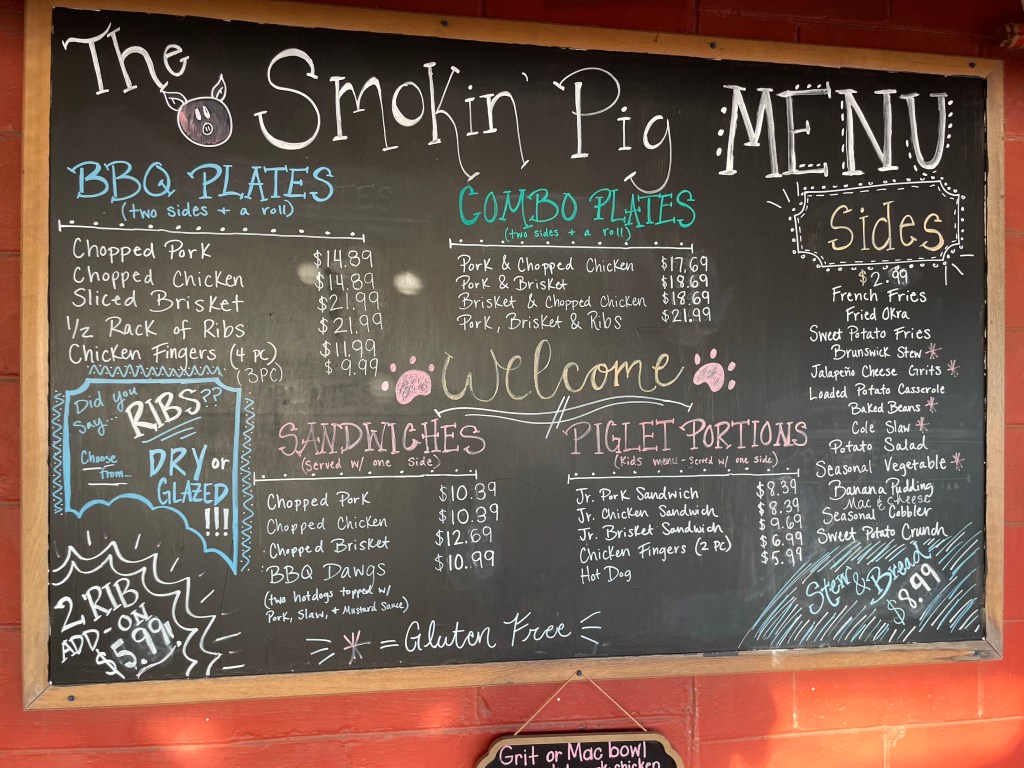 The Smokin' Pig MENU
BBQ PLATES
(two sides + a roll)
Chopped Pork $14.89
Chopped Chicken $14.89
Sliced Brisket $21.99
1/2 Rack of Ribs $21.99
Chicken Fingers (4 pc) $11.99
(3PC) $9.99
COMBO PLATES
(two sides + a roll)
Pork & Chopped Chicken $17.69
Pork & Brisket $18.69
Brisket & Chopped Chicken $18.69
Pork, Brisket & Ribs $21.99
Sides
$2.99
French Fries
Fried Okra
Sweet Potato Fries
Brunswick Stew *
Jalapeño Cheese Grits *
Loaded Potato Casserole
Baked Beans *
Cole Slaw *
Potato Salad
Seasonal Vegetable *
Banana Pudding
Mac & Cheese
Seasonal Cobbler
Sweet Potato Crunch
Stew & Bread
$8.99
Welcome
Did you
Say...
RIBS??
Choose
from...
DRY or
GLAZED
!!!
2 RIB
ADD-ON
$5.99!!
SANDWICHES
(Served w/ one side)
Chopped Pork $10.39
Chopped Chicken $10.39
Chopped Brisket $12.69
BBQ Dawgs $10.99
(two hotdogs topped w/
Pork, Slaw, + Mustard Sauce)
PIGLET PORTIONS
(Kids menu - Served w/ one side)
Jr. Pork Sandwich $8.39
Jr. Chicken Sandwich $8.39
Jr. Brisket Sandwich $9.69
Chicken Fingers (2 PC) $6.99
Hot Dog $5.99
* = Gluten Free
Grit or Mac bowl
chicken